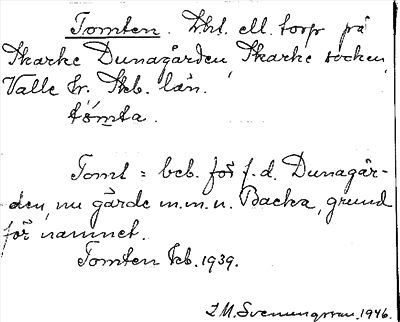 Tomten. Lht. ell. torp på
Skarke Dunagården, Skarke socken,
Valle hr. Skb. län.
tómta.
Tomt = beb. för f.d. Dunagår-
den, nu gärde m.m. u. Backa, grund
för namnet.
Tomten Kb. 1939.
I.M. Svenungsson. 1946.